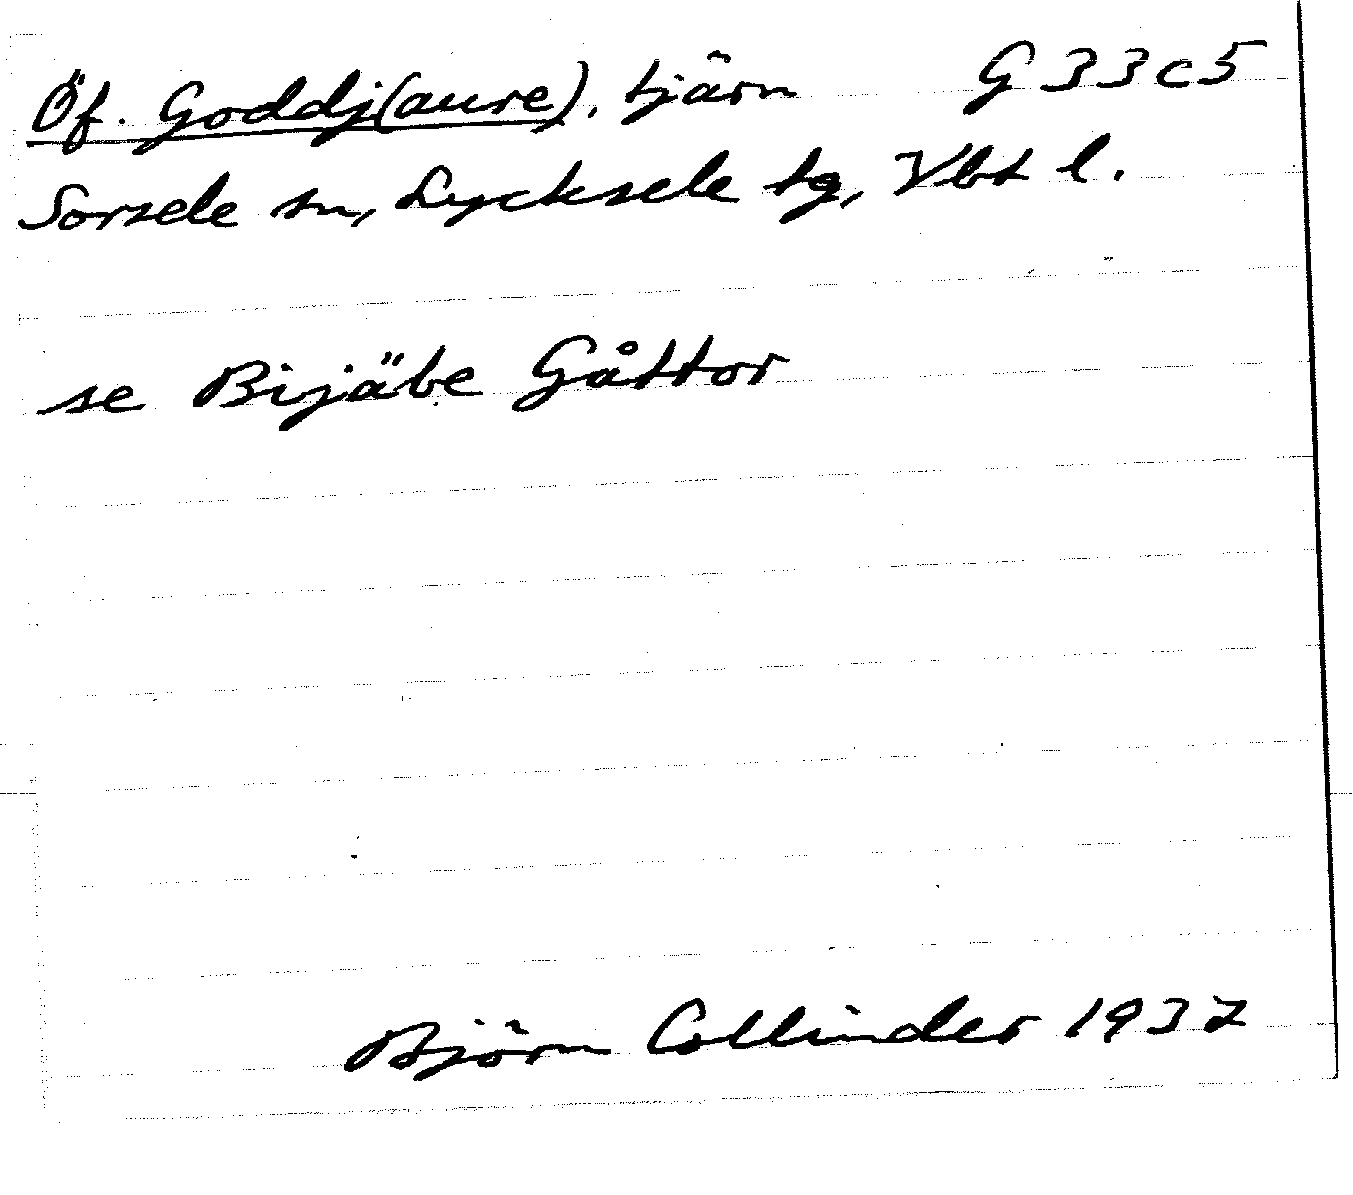 Öf. Goddj(aure), tjärn G 33 c 5
Sorsele sn, Lycksele tg, Vbt l.
se Bijäbe Gåttor
Björn Collinder 1937